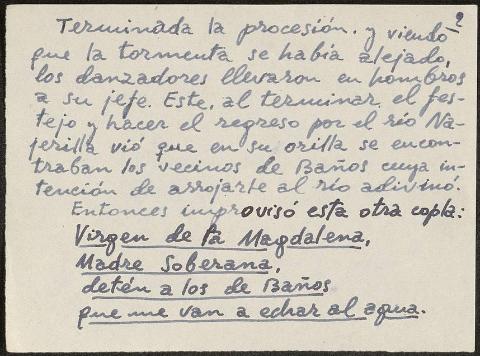 2
Terminada la procesión, y viendo
que la tormenta se había alejado,
los danzadores llevaron en hombros
a su jefe. Este, al terminar el fes-
tejo y hacer el regreso por el río Na-
jerilla vió que en su orilla se encon-
traban los vecinos de Baños cuya in-
tención de arrojarte al río adivinó.
Entonces improvisó esta otra copla:
Virgen de la Magdalena,
Madre Soberana,
detén a los de Baños
que me van a echar al agua.